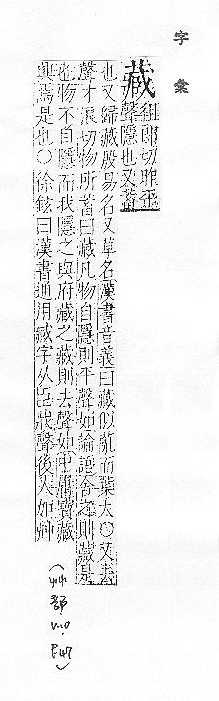 字彙
藏
徂郎切昨平
聲隱也又蓄
也又歸藏殷易名又草名漢書音義曰藏似薍而葉大〇又去
聲才浪切物所蓄曰藏凡物自隱則平聲如論語舍之則藏是
也物不自隱而我隱之與府藏之藏則去聲如中庸寶藏
興焉是也〇徐鉉曰漢書通用臧字从臣戕聲後人加艸
(艸部